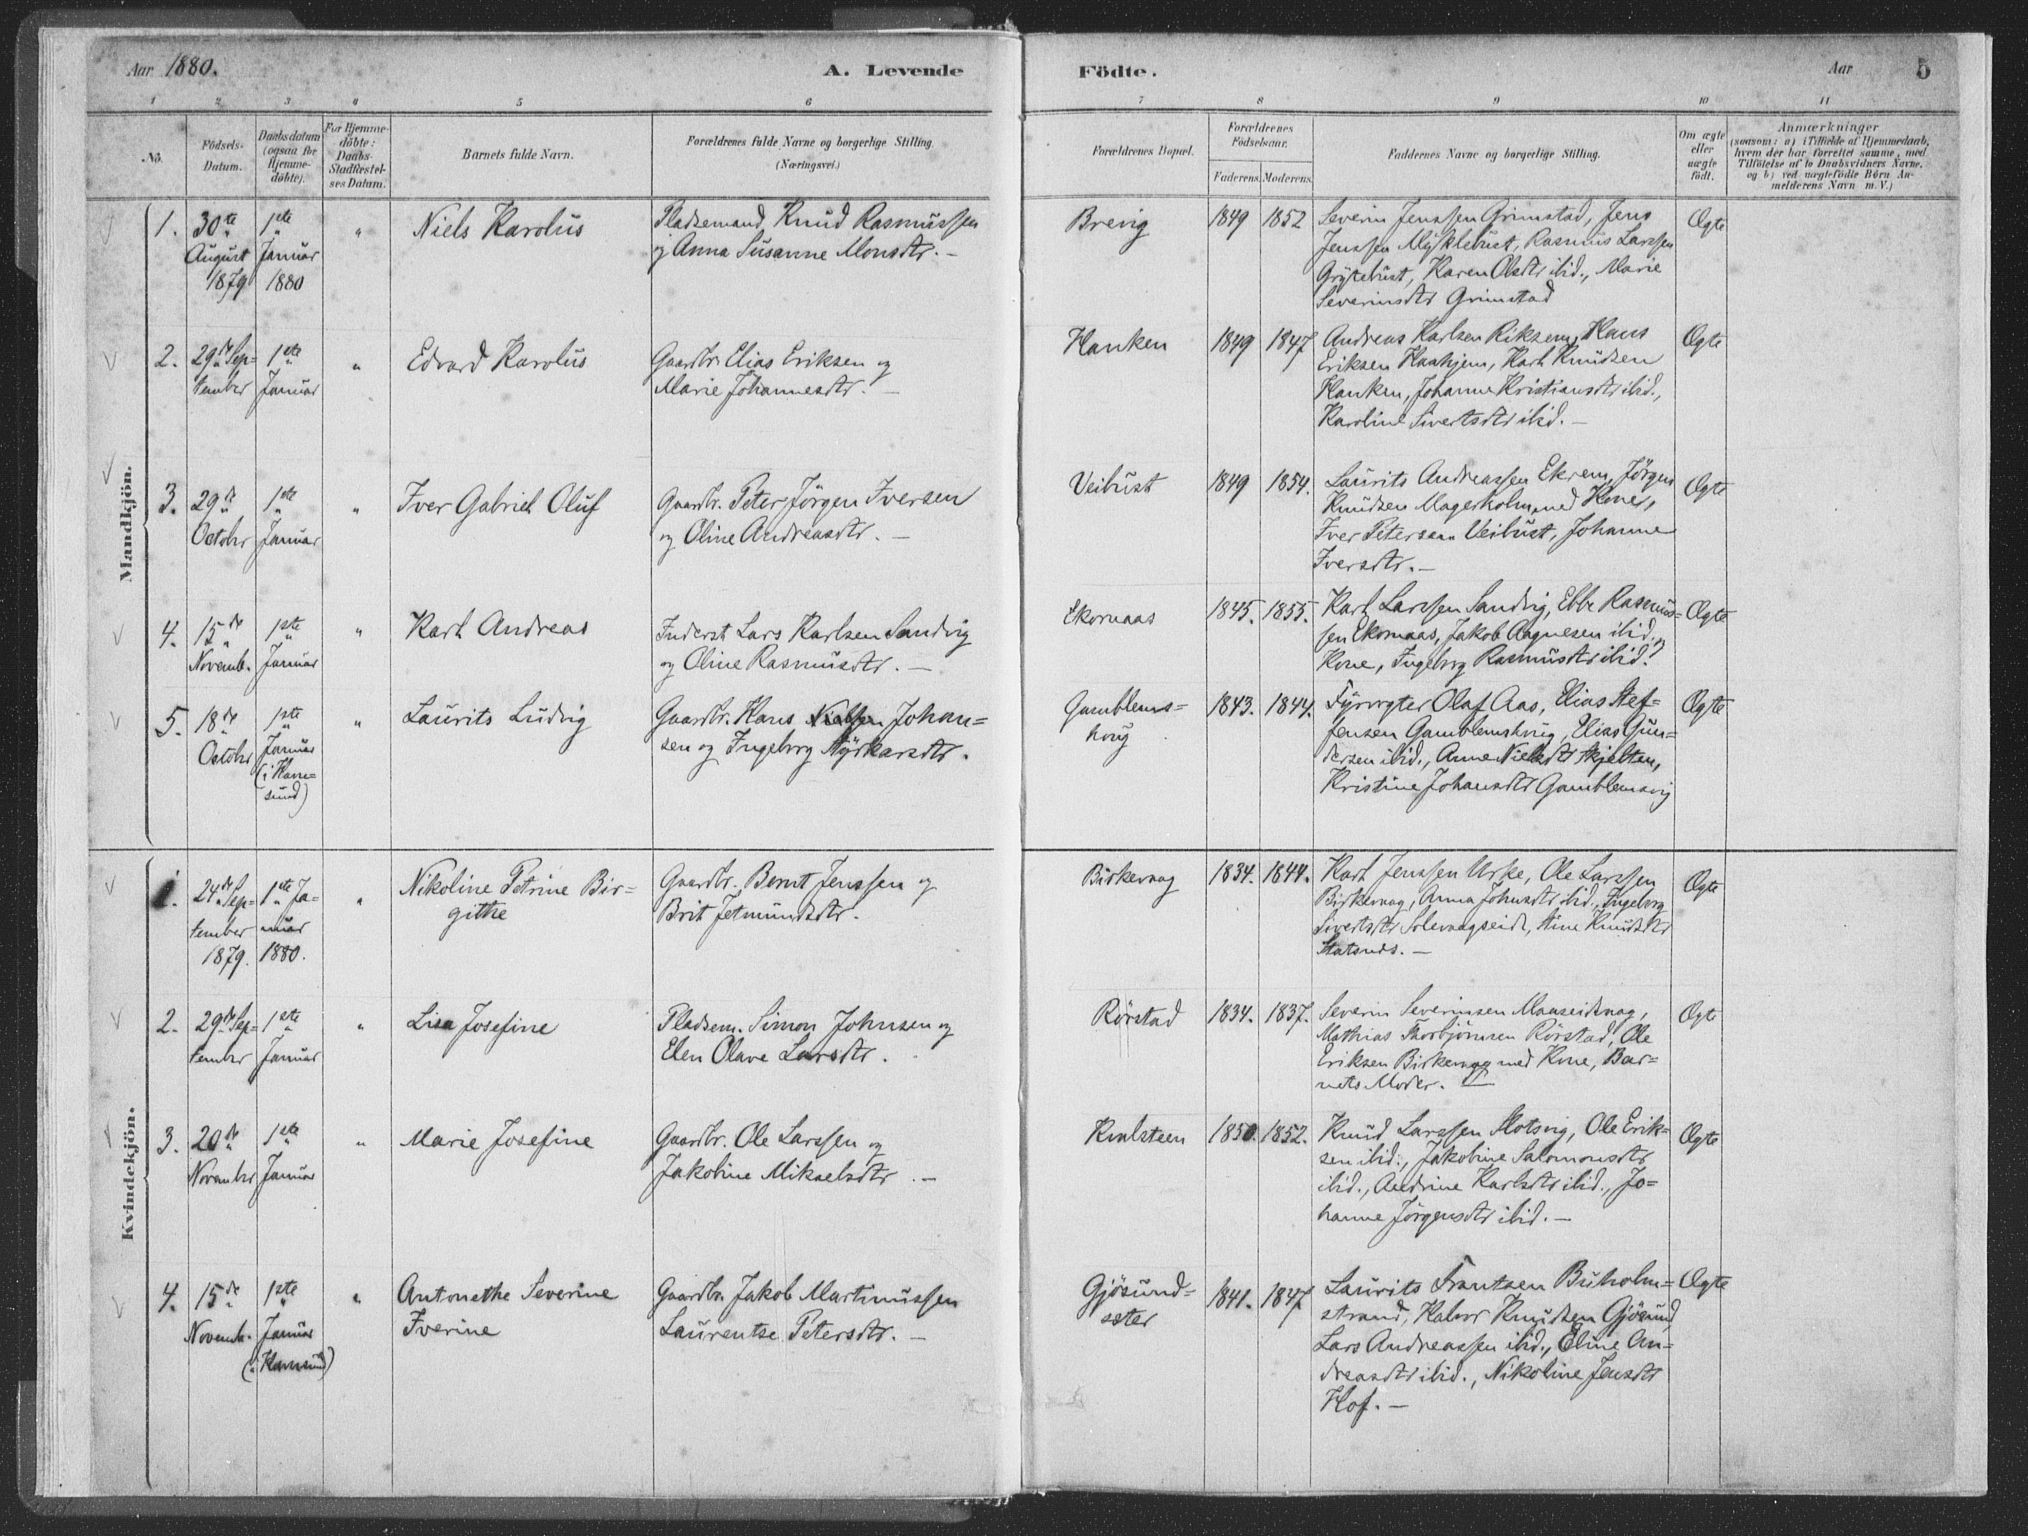 Aar 1880.
A. Levende
Födte.
Aar
5
1 2 3 4 5 6 7 8 9 10 11
No.
Födsels-
Datum.
Daabsdatum
(ogsaa for
Hjemme-
döbte).
For Hjemme-
döbte:
Daabs-
Stadfæstel-
ses Datum.
Barnets fulde Navn.
Forældrenes fulde Navne og borgerlige Stilling.
(Næringsvei.)
Forældrenes Bopæl.
Forældrenes
Födselsaar.
Faderens.
Moderens.
Faddernes Navne og borgerlige Stilling.
Om ægte
eller
uægte
födt.
Anmærkninger
(saasom: a) i Tilfælde af Hjemmedaab,
hvem der har forrettet samme, med
Tilföielse af to Daabsvidners Navne,
og b) ved uægtefödte Börn An-
melderens Navn m. V.)
Mandkjön.
1.
30te
August
1879
1ste
Januar
1880
"
Niels Karolus
Pladsemand Knud Rasmussen
og Anna Susanne Monsdtr. —
Brevig
1849
1852
Severin Jenssen Grimstad, Jens
Jenssen Myklebust, Rasmus Larssen
Grytebust, Karen Olsdtr ibid., Marie
Severinsdtr Grimstad
Ægte
2.
29de Sep=
tember
1ste
Januar
"
Edvard Karolus
Gaardbr. Elias Eriksen og
Marie Johannesdtr. —
Hanken
1849
1847
Andreas Karlsen Riksem, Hans
Eriksen Haahjem, Karl Knudsen
Hanken, Johanne Kristiansdtr ibid.,
Karoline Sivertsdtr ibid. —
Ægte
3.
29de
Octobr
1ste
Januar
"
Iver Gabriel Oluf
Gaardbr. Peter Jörgen Iversen
og Oline Andreasdtr. —
Veibust
1849
1854.
Laurits Andreassen Ekrem, Jörgen
Knudsen Magerholm med Kone,
Iver Petersen Veibust, Johanne
Iversdtr. —
Ægte
4.
15de
Novemb.
1ste
Januar
"
Karl Andreas
Inderst Lars Karlsen Sandvig
og Oline Rasmusdtr. —
Ekornaas
1845.
1855.
Karl Larssen Sandvig, Ebbe Rasmus=
sen Ekornaas, Jakob Aagnesen ibid. og
Kone, Ingeborg Rasmusdtr ibid.
Ægte
5.
18de
Octobr
1ste
Januar
(i Ham=
sund)
"
Laurits Ludvig
Gaardbr. Hans Johan=
sen og Ingeborg Styrkarsdtr.
Gamblems=
houg
1843.
1844.
Fyrvogter Olaf Aas, Elias Stef=
fensen Gamblemshoug, Elias Gun=
dersen ibid., Anne Nielsdtr Skjelten,
Kristine Johansdtr Gamblemsvig
Ægte
Kvindekjön.
1.
24de Sep=
tember
1879.
1ste Ja=
nuar
1880.
"
Nikoline Petrine Bir=
githe
Gaardbr. Bernt Jenssen og
Brit Jetmundsdtr.
Birkevaag
1834.
1844.
Karl Jenssen Urke, Ole Larssen
Birkevaag, Anna Johnsdtr ibid., Ingeborg
Sivertsdtr Solevaagseidt, Stine Knudsdtr
Ægte
2.
29de Sep=
tember
1ste
Januar
"
Lisa Josefine
Pladsem. Simon Johnsen og
Elen Olave Larsdtr.
Rörstad
1834.
1837.
Severin Severinsen Maaseidvaag,
Mathias Thorbjörnsen Rörstad, Ole
Eriksen Birkevaag med Kone, Bar=
nets Moder. —
Ægte
3.
20de
Novembr
1ste
Januar
"
Marie Josefine
Gaardbr. Ole Larssen og
Jakobine Mikaelsdtr. —
Kvalsteen
1850.
1852.
Knud Larssen Slotsvig, Ole Erik=
sen ibid., Jakobine Salomonsdtr
ibid., Andrine Karlsdtr ibid., Jo=
hanne Jörgensdtr ibid. —
Ægte
4.
15de
Novemb.
1ste
Januar
(i Hamsund)
"
Antonethe Severine
Iverine
Gaardbr. Jakob Martinussen
Laurentse Petersdtr. —
Gjösund=
sæter
1841.
1847
Laurits Frantsen Buholm=
strand, Halvor Knudsen Gjösund,
Lars Andreassen ibid., Eline An=
dreasdtr ibid., Nikoline Jensdtr
Hof. —
Ægte